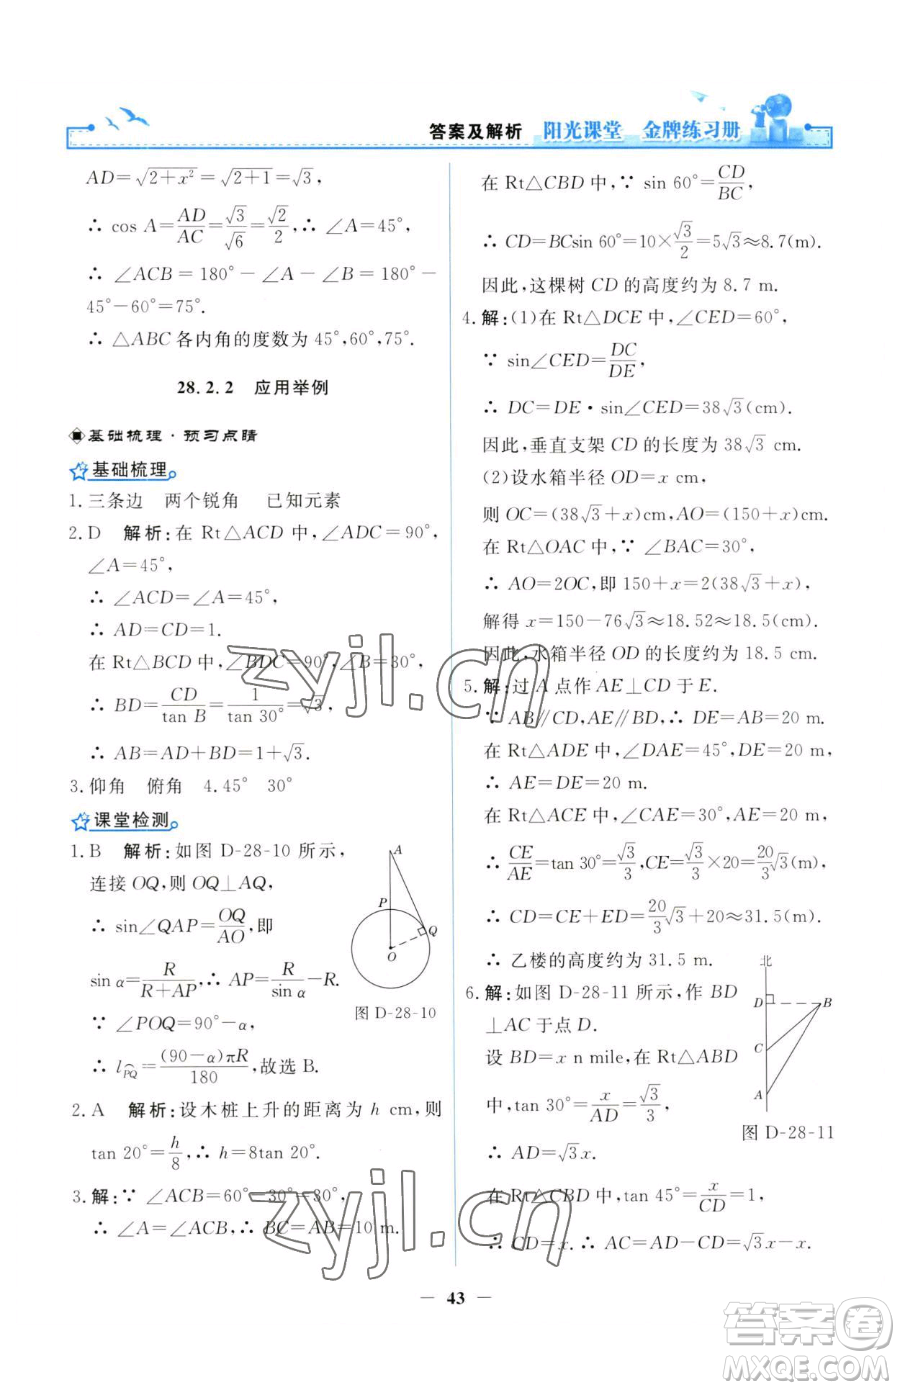 答案及解析 阳光课堂 金牌练习册
AD=√(2+x²)=√(2+1)=√3,
∴ cos A=AD/AC=√3/√6=√2/2,∴ ∠A=45°,
∴ ∠ACB=180°-∠A-∠B=180°-
45°-60°=75°.
∴ △ABC 各内角的度数为 45°,60°,75°.
28.2.2 应用举例
基础梳理·预习点睛
基础梳理
1.三条边 两个锐角 已知元素
2.D 解析:在 Rt△ACD 中,∠ADC=90°,
∠A=45°,
∴ ∠ACD=∠A=45°,
∴ AD=CD=1.
在 Rt△BCD 中,∠BDC=90°,∠B=30°,
∴ BD=CD/tan B=1/tan 30°=√3,
∴ AB=AD+BD=1+√3.
3.仰角 俯角 4.45° 30°
课堂检测
1.B 解析:如图 D-28-10 所示,
连接 OQ,则 OQ⊥AQ,
∴ sin∠QAP=OQ/AO,即
sin α=R/(R+AP),∴ AP=R/sin α-R.
∵ ∠POQ=90°-α,
∴ l⌒PQ=(90-α)πR/180,故选 B.
A
P
Q
O
图 D-28-10
2.A 解析:设木桩上升的距离为 h cm,则
tan 20°=h/8,∴ h=8tan 20°.
3.解:∵ ∠ACB=60°-30°=30°,
∴ ∠A=∠ACB,∴ BC=AB=10 m.
在 Rt△CBD 中,∵ sin 60°=CD/BC,
∴ CD=BCsin 60°=10×√3/2=5√3≈8.7(m).
因此,这棵树 CD 的高度约为 8.7 m.
4.解:(1)在 Rt△DCE 中,∠CED=60°,
∵ sin∠CED=DC/DE,
∴ DC=DE·sin∠CED=38√3(cm).
因此,垂直支架 CD 的长度为 38√3 cm.
(2)设水箱半径 OD=x cm,
则 OC=(38√3+x)cm,AO=(150+x)cm.
在 Rt△OAC 中,∵ ∠BAC=30°,
∴ AO=2OC,即 150+x=2(38√3+x),
解得 x=150-76√3≈18.52≈18.5(cm).
因此,水箱半径 OD 的长度约为 18.5 cm.
5.解:过 A 点作 AE⊥CD 于 E.
∵ AB∥CD,AE∥BD,∴ DE=AB=20 m.
在 Rt△ADE 中,∠DAE=45°,DE=20 m,
∴ AE=DE=20 m.
在 Rt△ACE 中,∠CAE=30°,AE=20 m,
∴ CE/AE=tan 30°=√3/3,CE=√3/3×20=20/3√3(m),
∴ CD=CE+ED=20/3√3+20≈31.5(m).
∴ 乙楼的高度约为 31.5 m.
6.解:如图 D-28-11 所示,作 BD
⊥AC 于点 D.
设 BD=x n mile,在 Rt△ABD
中,tan 30°=x/AD=√3/3,
∴ AD=√3x.
北
D
B
C
A
图 D-28-11
在 Rt△CBD 中,tan 45°=x/CD=1,
∴ CD=x.∴ AC=AD-CD=√3x-x.
43
zyjl.cn
zyjl.cn
答案圈
MXQE.COM